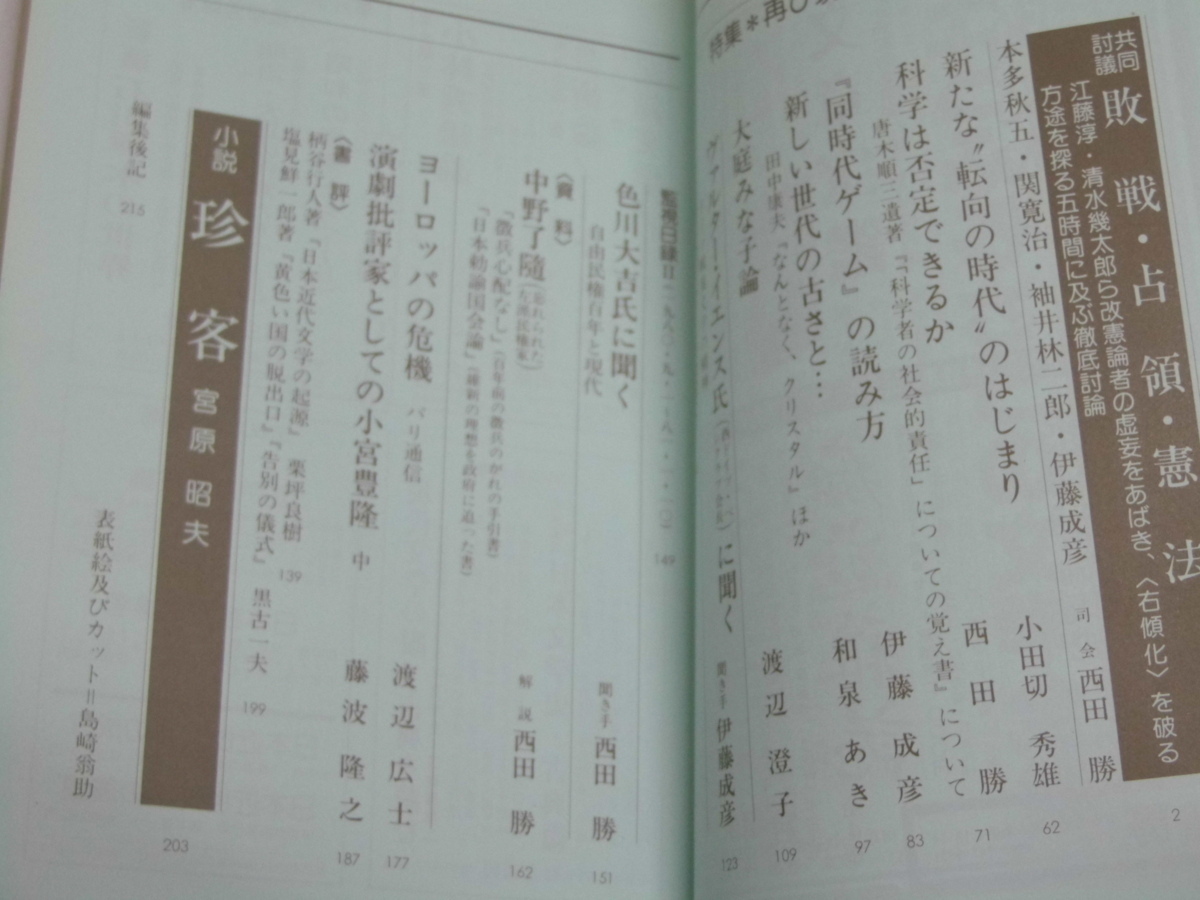 特集＊再び
共同討議
敗戦・占領・憲法
江藤淳・清水幾太郎ら改憲論者の虚妄をあばき、〈右傾化〉を破る
方途を探る五時間に及ぶ徹底討論
本多秋五・関寛治・袖井林二郎・伊藤成彦 司会 西田勝 2
新たな〝転向の時代〟のはじまり 小田切秀雄 62
科学は否定できるか 西田勝 71
唐木順三遺著『「科学者の社会的責任」についての覚え書』について
『同時代ゲーム』の読み方 伊藤成彦 83
新しい世代の古さと… 和泉あき 97
田中康夫『なんとなく、クリスタル』ほか
大庭みな子論 渡辺澄子 109
ヴァルター・イェンス氏 に聞く 聞き手 伊藤成彦 123
監視日録Ⅱ 149
色川大吉氏に聞く 聞き手 西田勝 151
自由民権百年と現代
〈資料〉
中野了随（忘れられた左派民権家） 解説 西田勝 162
『徴兵心配なし』（百年前の徴兵のがれの手引書）
『日本勅諭国会論』（維新の理想を政府に迫った書）
ヨーロッパの危機 パリ通信 渡辺広士 177
演劇批評家としての小宮豊隆 中 藤波隆之 187
〈書評〉
柄谷行人著『日本近代文学の起源』 栗坪良樹 139
塩見鮮一郎著『黄色い国の脱出口』『告別の儀式』 黒古一夫 199
小説 珍客 宮原昭夫 203
編集後記 215
表紙絵及びカット＝島崎翁助